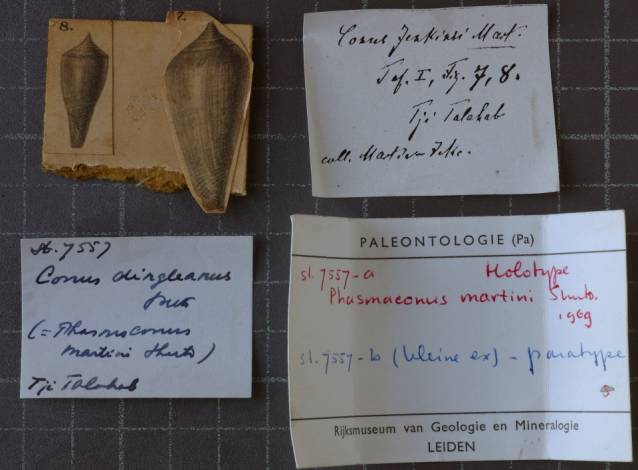 8.
7.
Conus Jenkinsi Mart.
Taf. I, Fig. 7, 8.
Tji Talahab
coll. Martin
St. 7557
Conus
(= Phasmoconus
martini Shuto)
Tji Talahab
PALEONTOLOGIE (Pa)
st. 7557-a Holotype
Phasmaconus martini Shuto.
1969
st. 7557-b (kleine ex) - paratype
Rijksmuseum van Geologie en Mineralogie
LEIDEN